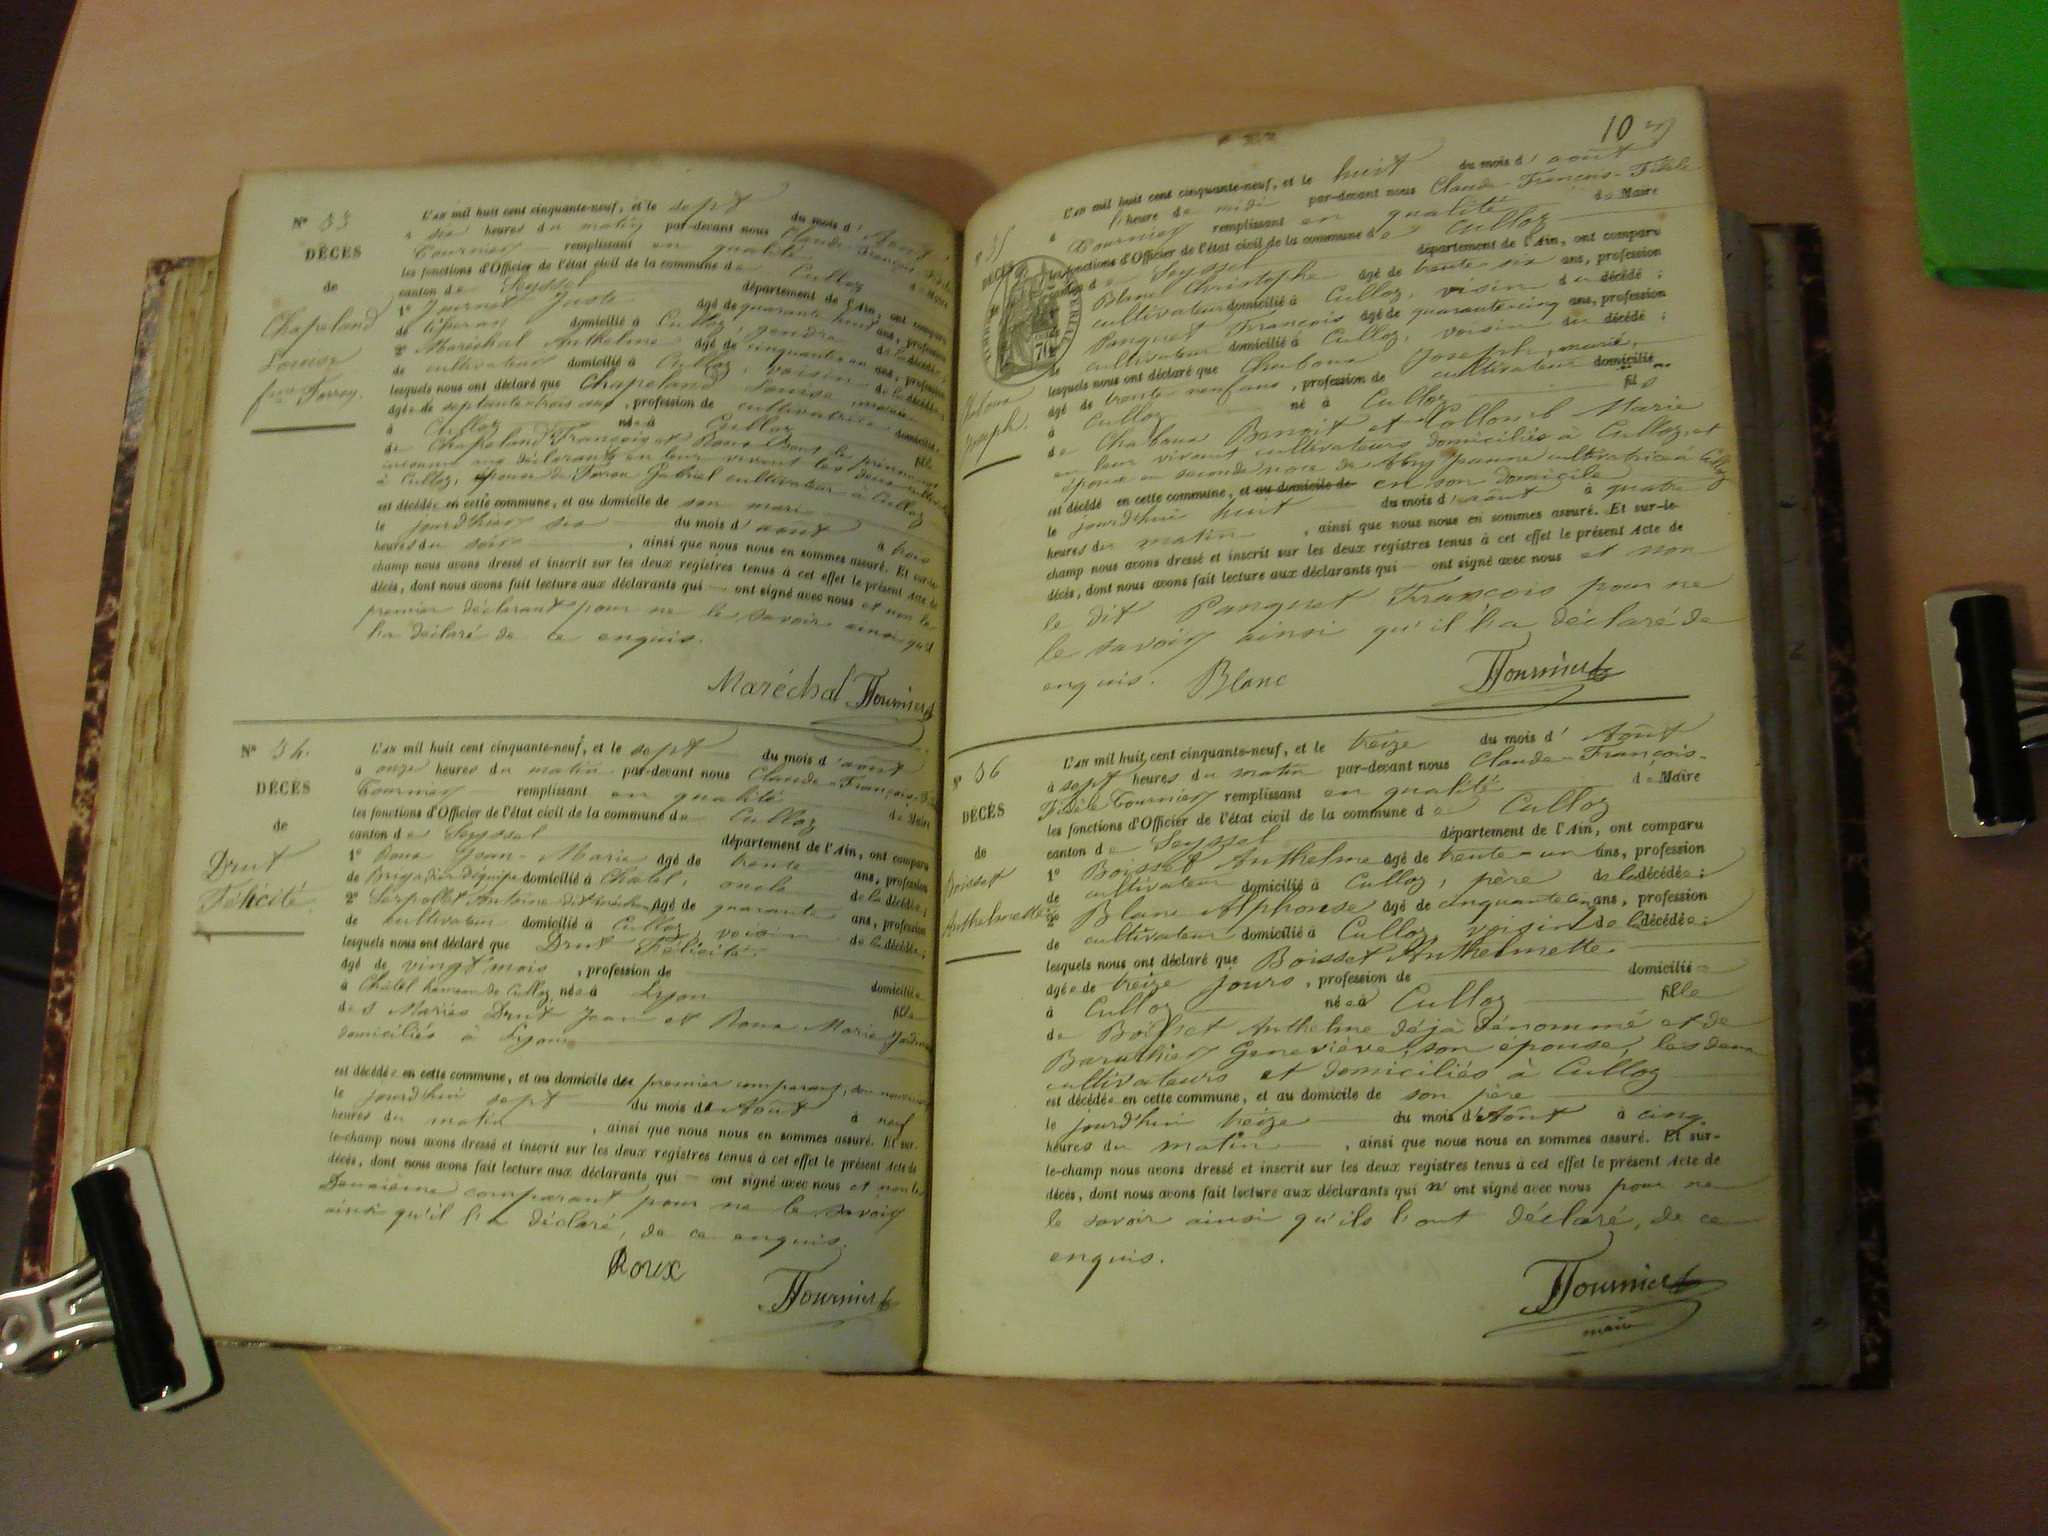 Nº 33
DÉCÈS
de
Chapeland
Louise
fme Farroy.
L'AN mil huit cent cinquante-neuf, et le sept du mois d'Août
à six heures du matin par-devant nous Claude-François-Fidèle
Tournier remplissant en qualité de Maire
les fonctions d'Officier de l'état civil de la commune de Culloz
canton de Seyssel département de l'Ain, ont comparu
1º Juste âgé de quarante huit ans, profession
de domicilié à Culloz, gendre de la décédée;
2º Maréchal Anthelme âgé de cinquante un ans, profession
de cultivateur domicilié à Culloz, voisin de la décédée;
lesquels nous ont déclaré que Chapeland Louise,
âgée de septante-trois ans, profession de cultivatrice domiciliée
à Culloz née à Culloz fille
de Chapeland François et Roux dont le prénom est
inconnu aux déclarants en leur vivant les deux cultivateurs
à Culloz, épouse de Gabriel cultivateur à Culloz
est décédée en cette commune, et au domicile de son mari
le jourd'hier six du mois d'août à trois
heures du soir, ainsi que nous nous en sommes assuré. Et sur-le-
champ nous avons dressé et inscrit sur les deux registres tenus à cet effet le présent Acte de
décès, dont nous avons fait lecture aux déclarants qui — ont signé avec nous et non le
premier déclarant pour ne le savoir ainsi qu'il
l'a déclaré de ce enquis.
Maréchal Tournier
Nº 34.
DÉCÈS
de
Drut
Félicité
L'AN mil huit cent cinquante-neuf, et le sept du mois d'août
à onze heures du matin par-devant nous Claude-François-Fidèle
Tournier remplissant en qualité de Maire
les fonctions d'Officier de l'état civil de la commune de Culloz
canton de Seyssel département de l'Ain, ont comparu
1º Roux Jean-Marie âgé de trente ans, profession
de Brigadier d'équipe domicilié à Châtel, oncle de la décédée;
2º Serpollet Antoine dit âgé de quarante ans, profession
de cultivateur domicilié à Culloz, voisin de la décédée;
lesquels nous ont déclaré que Drut Félicité
âgé de vingt mois, profession de domiciliée
à Châtel hameau de Culloz, née à Lyon fille
des Mariés Drut Jean et Roux Marie
domiciliés à Lyon
est décédée en cette commune, et au domicile des premier comparant, son nourricier
le jourd'hui sept du mois d'Août à neuf
heures du matin, ainsi que nous nous en sommes assuré. Et sur-
le-champ nous avons dressé et inscrit sur les deux registres tenus à cet effet le présent Acte de
décès, dont nous avons fait lecture aux déclarants qui — ont signé avec nous et non le
Deuxième comparant pour ne le savoir
ainsi qu'il l'a déclaré, de ce enquis.
Roux
Tournier
10
º 35
DÉCÈS
de
Chaboux
Joseph.
L'AN mil huit cent cinquante-neuf, et le huit du mois d'août
à l'heure de midi par-devant nous Claude-François-Fidèle
Tournier remplissant en qualité de Maire
les fonctions d'Officier de l'état civil de la commune de Culloz
canton de Seyssel département de l'Ain, ont comparu
Blanc Christophe âgé de trente six ans, profession
de cultivateur domicilié à Culloz, voisin du décédé;
Panguet François âgé de quarante cinq ans, profession
de cultivateur domicilié à Culloz, voisin du décédé;
lesquels nous ont déclaré que Chaboux Joseph, marié,
âgé de trente neuf ans, profession de cultivateur domicilié
à Culloz né à Culloz fils
de Chaboux Benoit et Collomb Marie
en leur vivant cultivateurs domiciliés à Culloz, et
époux en seconde noce de Abry Jeanne cultivatrice à Culloz
est décédé en cette commune, et au domicile de en son domicile
le jourd'hui huit du mois d'août à quatre
heures du matin, ainsi que nous nous en sommes assuré. Et sur-le-
champ nous avons dressé et inscrit sur les deux registres tenus à cet effet le présent Acte de
décès, dont nous avons fait lecture aux déclarants qui — ont signé avec nous et non
le dit Panguet François pour ne
le savoir ainsi qu'il l'a déclaré de
enquis. Blanc Tournier
Nº 36
DÉCÈS
de
Boisset
Anthelmette
L'AN mil huit cent cinquante-neuf, et le treize du mois d'Août
à sept heures du matin par-devant nous Claude-François-
Fidèle Tournier remplissant en qualité de Maire
les fonctions d'Officier de l'état civil de la commune de Culloz
canton de Seyssel département de l'Ain, ont comparu
1º Boisset Anthelme âgé de trente-un ans, profession
de cultivateur domicilié à Culloz, père de la décédée;
2º Blanc Alphonse âgé de cinquante cinq ans, profession
de cultivateur domicilié à Culloz voisin de la décédée;
lesquels nous ont déclaré que Boisset Anthelmette
âgée de treize jours, profession de domiciliée
à Culloz née à Culloz fille
de Boisset Anthelme déjà dénommé et de
Baruthier Geneviève, son épouse, les deux
cultivateurs et domiciliés à Culloz
est décédée en cette commune, et au domicile de son père
le jourd'hui treize du mois d'Août à cinq
heures du matin, ainsi que nous nous en sommes assuré. Et sur-
le-champ nous avons dressé et inscrit sur les deux registres tenus à cet effet le présent Acte de
décès, dont nous avons fait lecture aux déclarants qui n'ont signé avec nous pour ne
le savoir ainsi qu'ils l'ont déclaré, de ce
enquis.
Tournier
maire